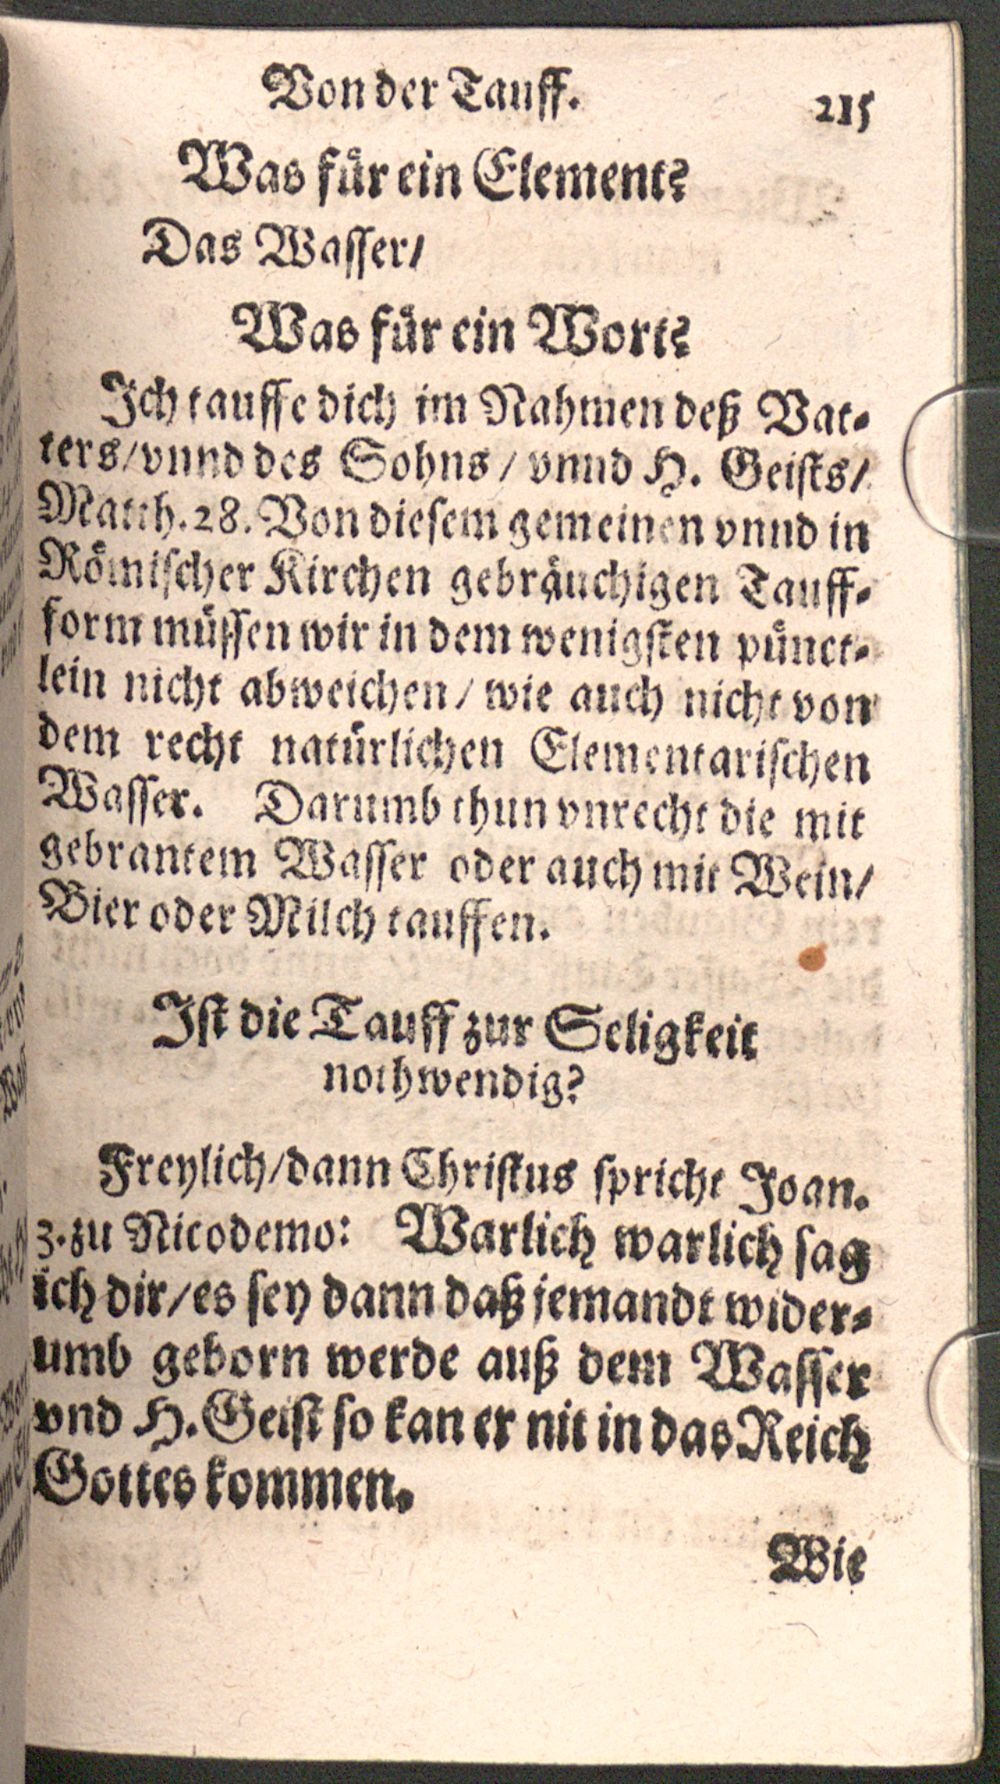 Von der Tauff. 215
Was für ein Element?
Das Wasser/
Was für ein Wort?
Ich tauffe dich im Nahmen deß Vat-
ters/vnnd des Sohns / vnnd H. Geists/
Matth.28. Von diesem gemeinen vnnd in
Römischer Kirchen gebräuchigen Tauff-
form müssen wir in dem wenigsten pünct-
lein nicht abweichen / wie auch nicht von
dem recht natürlichen Elementarischen
Wasser. Darumb thun vnrecht die mit
gebrantem Wasser oder auch mit Wein/
Bier oder Milch tauffen.
Ist die Tauff zur Seligkeit
nothwendig?
Freylich/dann Christus spricht Joan.
3. zu Nicodemo: Warlich warlich sag
ich dir/es sey dann daß jemandt wider-
umb geborn werde auß dem Wasser
vnd H. Geist so kan er nit in das Reich
Gottes kommen.
Wie